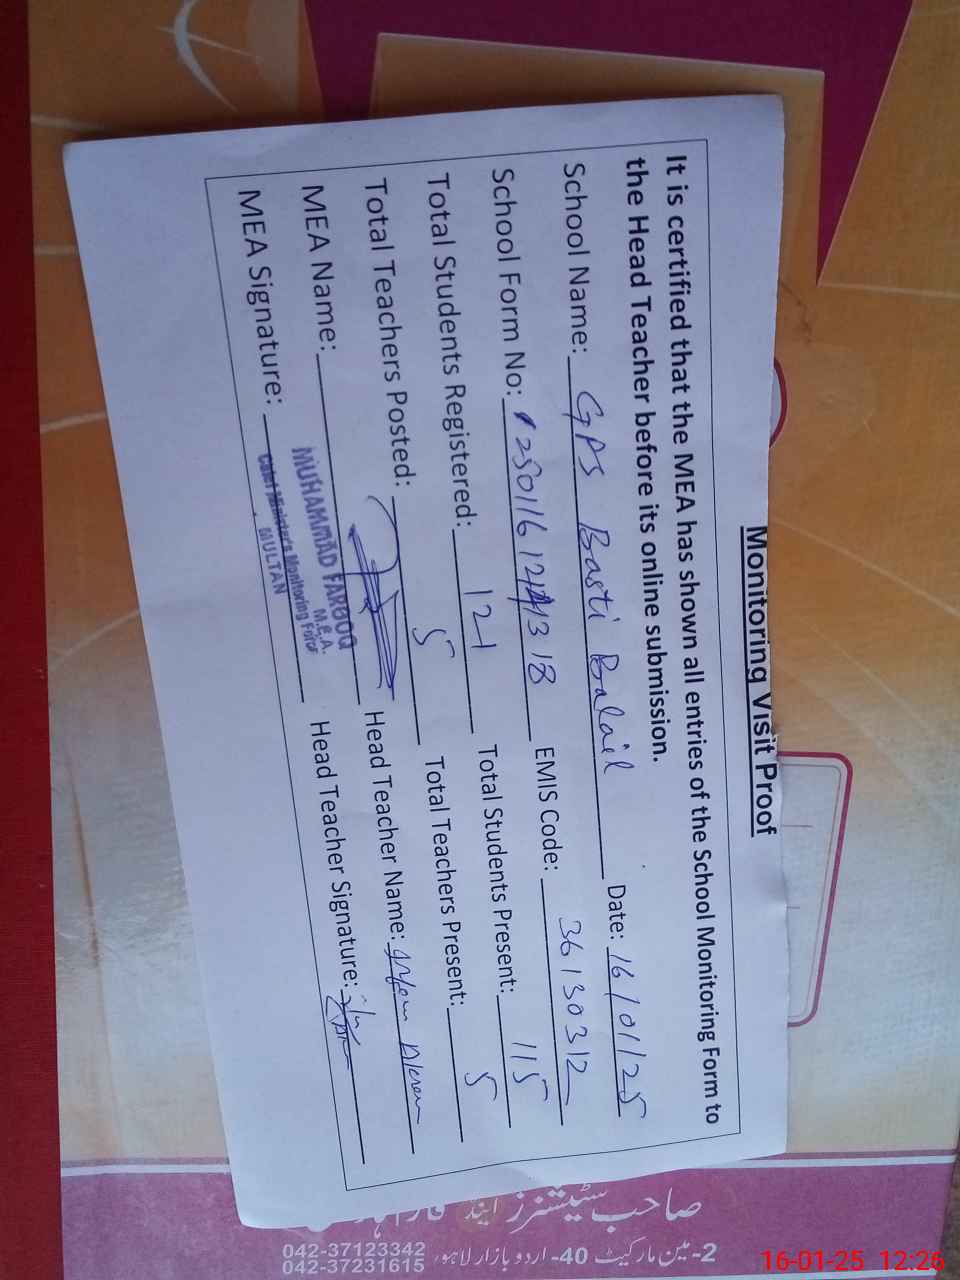 Monitoring Visit Proof
It is certified that the MEA has shown all entries of the School Monitoring Form to
the Head Teacher before its online submission.
School Name: GPS Basti Balail Date: 16/01/25
School Form No: EMIS Code: 36130312
Total Students Registered: 121 Total Students Present: 115
Total Teachers Posted: 5 Total Teachers Present: 5
MEA Name: Head Teacher Name:
MUHAMMAD FAROOQ
M.E.A.
MEA Signature: Head Teacher Signature:
Chief Minister's Monitoring Force
MULTAN
صاحب سٹیشنرز اینڈ
2-مین مارکیٹ 40-اردو بازار لاہور 042-37123342
042-37231615
16-01-25 12:26